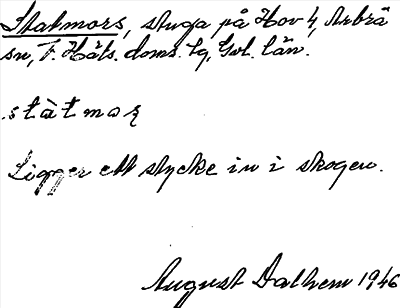 Statmors, stuga på Hov 4, Arbrå
sn, V. Häls. doms. tg, Gvl. län.
státmaʂ
Ligger ett stycke in i skogen.
August Dalhem 1946